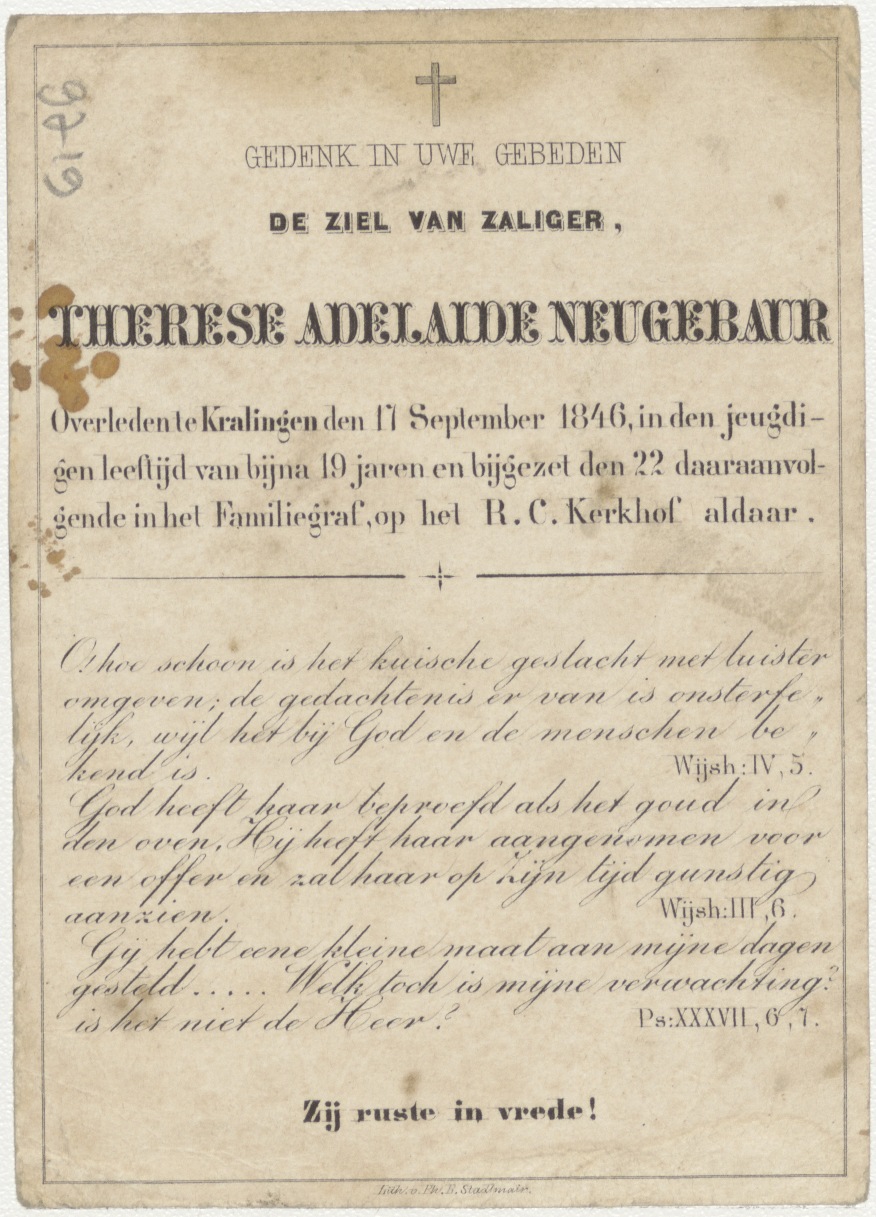 GEDENK IN UWE GEBEDEN
DE ZIEL VAN ZALIGER,
THERESE ADELAIDE NEUGEBAUR
Overleden te Kralingen den 17 September 1846, in den jeugdi-
gen leeftijd van bijna 19 jaren en bijgezet den 22 daaraanvol-
gende in het Familiegraf, op het R. C. Kerkhof aldaar.
O! hoe schoon is het kuische geslacht met luister
omgeven; de gedachtenis er van is onsterfe„
lijk, wijl het bij God en de menschen be„
kend is. Wijsh: IV, 5.
God heeft haar beproefd als het goud in
den oven, Hij heeft haar aangenomen voor
een offer en zal haar op Zijn tijd gunstig
aanzien. Wijsh: III, 6.
Gij hebt eene kleine maat aan mijne dagen
gesteld..... Welk toch is mijne verwachting?
is het niet de Heer? Ps: XXXVII, 6, 7.
Zij ruste in vrede!
Lith. v. Ph. B.